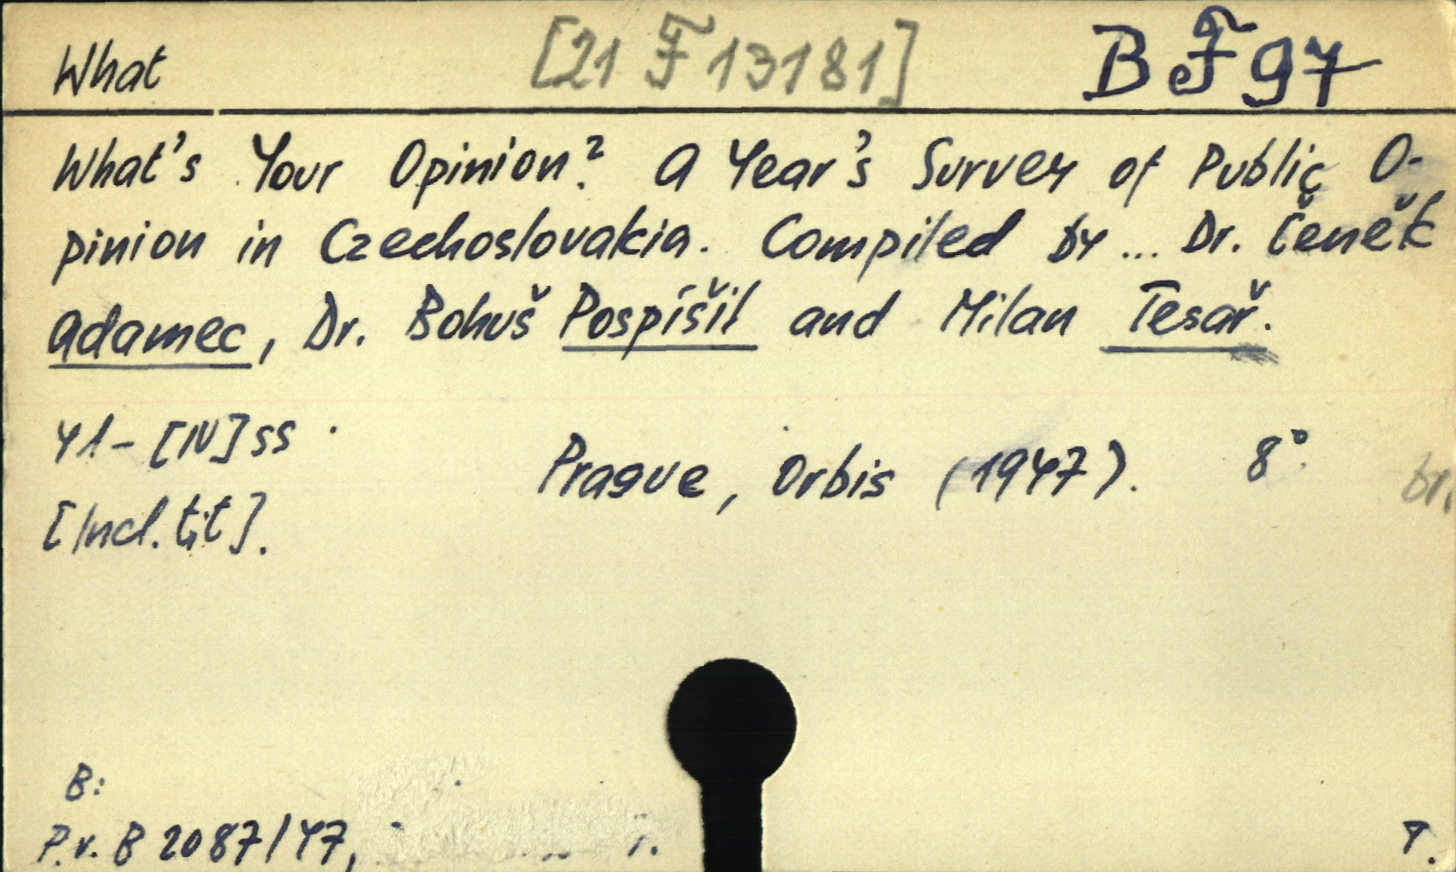 What [21 F 13181] B F 97
What's Your Opinion? A Year's Survey of Public O-
pinion in Czechoslovakia. Compiled by ... Dr. Čeněk
Adamec, Dr. Bohuš Pospíšil and Milan Tesař.
41-[IV] ss
Prague, Orbis (1947). 8°. br.
[Incl. tit].
B:
P.v. B 2087/47,
T.